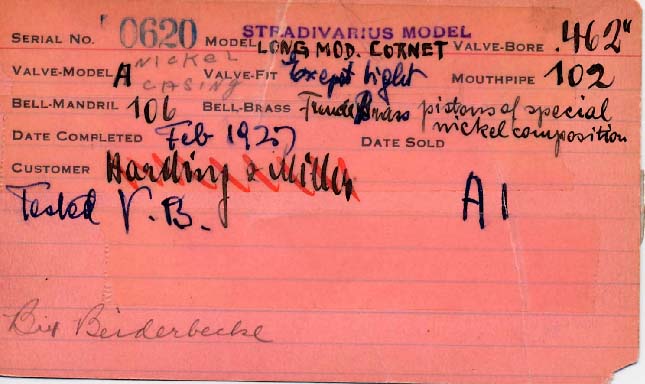 STRADIVARIUS MODEL
SERIAL NO. 0620 MODEL LONG MOD. CORNET VALVE-BORE .462"
VALVE-MODEL A NICKEL CASING VALVE-FIT Light MOUTHPIPE 102
BELL-MANDRIL 106 BELL-BRASS Brass pistons of special nickel composition
DATE COMPLETED Feb 1927 DATE SOLD
CUSTOMER Harding & Miller
Tested V. B. A1
Bix Beiderbecke